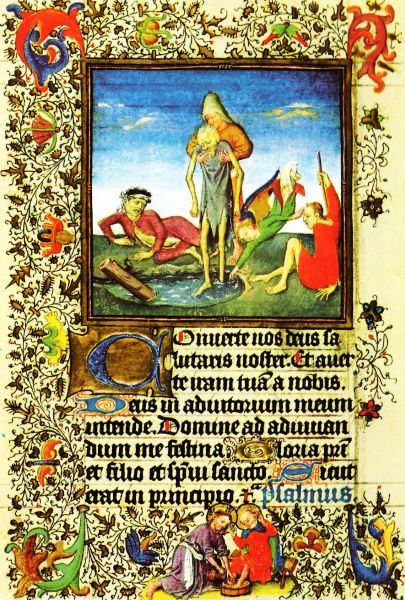 Conuerte nos deus sa
lutaris noster. Et auer
te iram tuā a nobis.
Deus in adiutorium meum
intende. Domine ad adiuuan
dum me festina. Gloria pri
et filio et spiui sancto. Sicut
erat in principio. Psalmus.